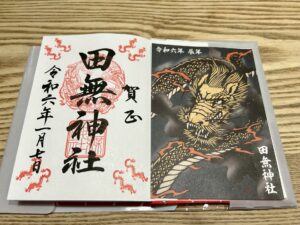 賀正
田無神社
令和六年一月七日
令和六年 辰年
田無神社